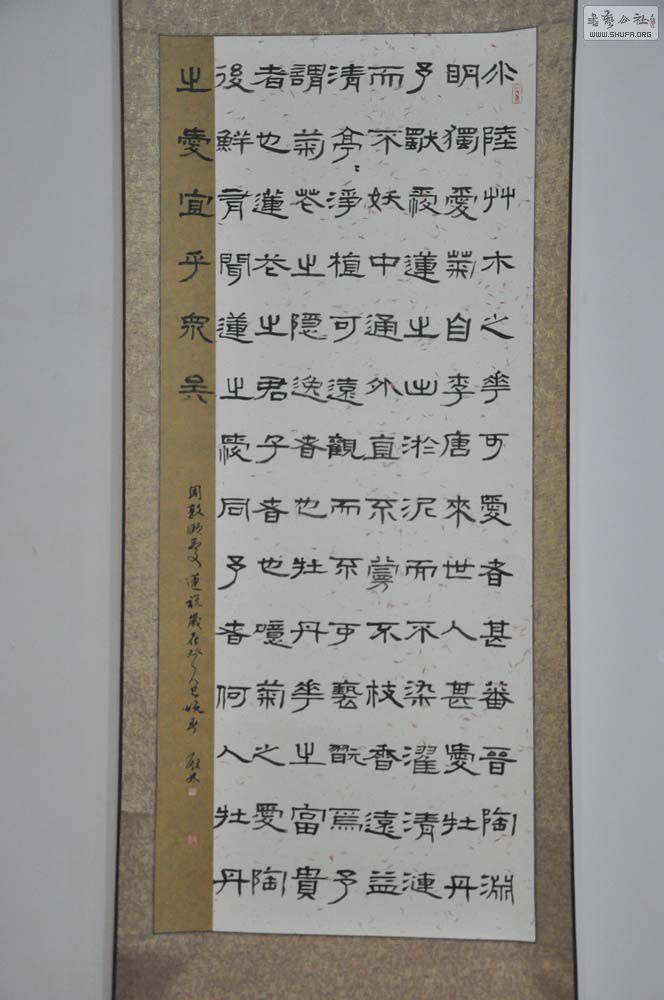 水陸艸木之華可愛者甚蕃晉陶淵
明獨愛菊自李唐來世人甚愛牡丹
予獨愛蓮之出淤泥而不染濯清漣
而不妖中通外直不蔓不枝香遠益
清亭〻淨植可遠觀而不可褻翫焉予
謂菊花之隱逸者也牡丹華之富貴
者也蓮花之君子者也噫菊之愛陶
後鮮有聞蓮之愛同予者何人牡丹
之愛宜乎衆矣
周敦頤蓮說歲在癸巳晚春
书艺公社
WWW.SHUFA.ORG